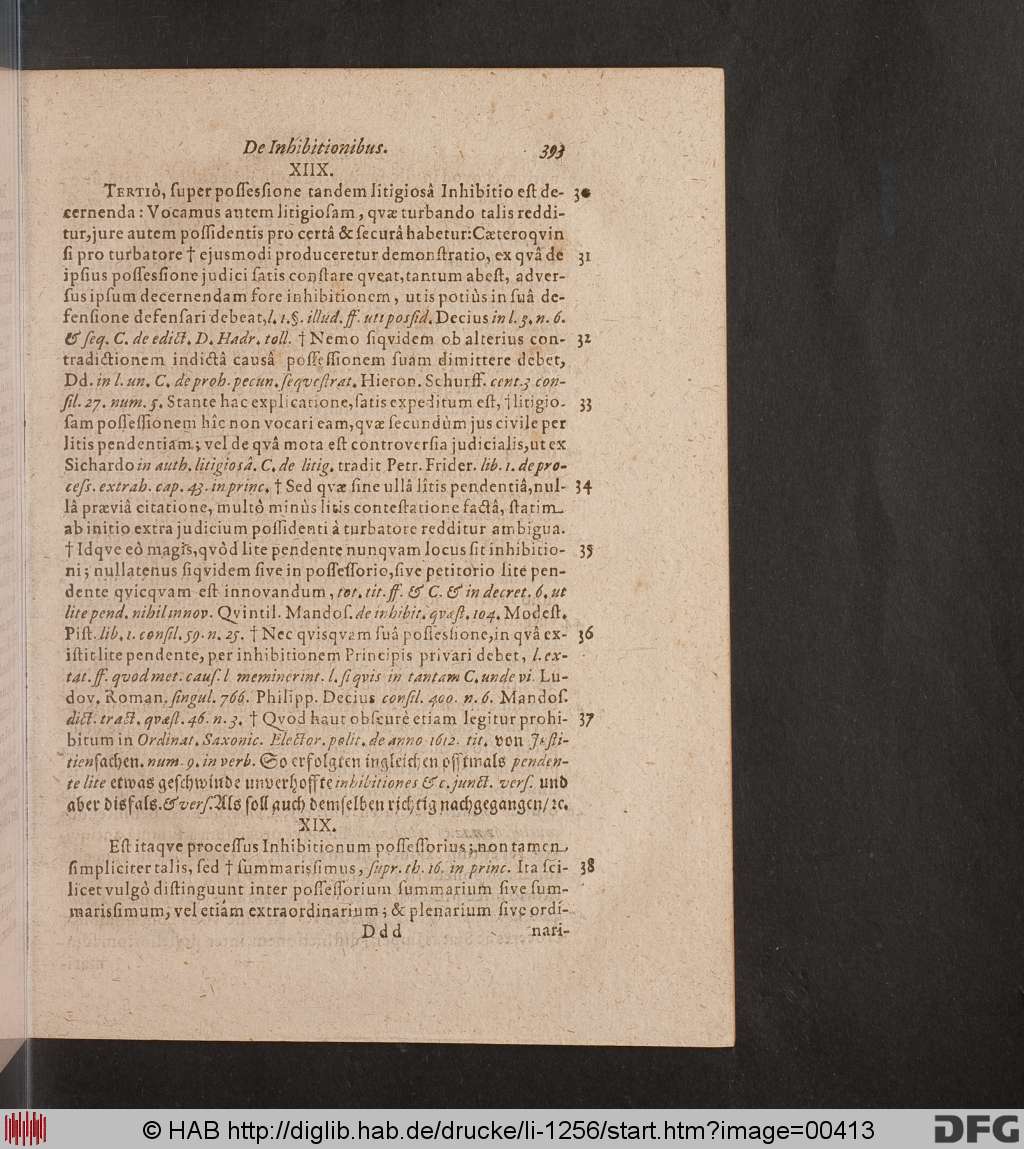 De Inhibitionibus. 393
XIIX.
TERTIÒ, ſuper poſſeſsione tandem litigiosâ Inhibitio eſt de- 30
cernenda: Vocamus autem litigioſam, qvæ turbando talis reddi-
tur, jure autem poſſidentis pro certâ & ſecurâ habetur: Cæteroqvin
ſi pro turbatore † ejusmodi produceretur demonſtratio, ex qvâ de 31
ipſius poſſeſsione judici ſatis conſtare qveat, tantum abeſt, adver-
ſus ipſum decernendam fore inhibitionem, ut is potiùs in ſuâ de-
fenſione defenſari debeat, l. 1. §. illud. ff. uti poſſid. Decius in l. 3. n. 6.
& ſeq. C. de edict. D. Hadr. toll. † Nemo ſiqvidem ob alterius con- 32
tradictionem indictâ causâ poſſeſsionem ſuam dimittere debet,
Dd. in l. un. C. de proh. pecun. ſeqveſtrat. Hieron. Schurff. cent. 3 con-
ſil. 27. num. 5. Stante hac explicatione, ſatis expeditum eſt, † litigio- 33
ſam poſſeſsionem hîc non vocari eam, qvæ ſecundùm jus civile per
litis pendentiam; vel de qvâ mota eſt controverſia judicialis, ut ex
Sichardo in auth. litigiosâ. C. de litig. tradit Petr. Frider. lib. 1. de pro-
ceſs. extrah. cap. 43. in princ. † Sed qvæ ſine ullâ litis pendentiâ, nul- 34
lâ præviâ citatione, multò minùs litis conteſtatione factâ, ſtatim
ab initio extra judicium poſſidenti à turbatore redditur ambigua.
† Idqve eò magis, qvòd lite pendente nunqvam locus ſit inhibitio- 35
ni; nullatenus ſiqvidem ſive in poſſeſſorio, ſive petitorio lite pen-
dente qvicqvam eſt innovandum, tot. tit. ff. & C. & in decret. 6. ut
lite pend. nihil innov. Qvintil. Mandoſ. de inhibit. qvæſt. 104. Modeſt.
Piſt. lib. 1. conſil. 59. n. 25. † Nec qvisqvam ſuâ poſſeſsione, in qvâ ex- 36
iſtit lite pendente, per inhibitionem Principis privari debet, l. ex-
tat. ff. qvod met. cauſ. l meminerint. l. ſi qvis in tantam C. unde vi. Lu-
dov. Roman. ſingul. 766. Philipp. Decius conſil. 400. n. 6. Mandoſ.
dict. tract. qvæſt. 46. n. 3. † Qvod haut obſcurè etiam legitur prohi- 37
bitum in Ordinat. Saxonic. Elector. polit. de anno 1612. tit. von Juſti-
tienſachen. num. 9. in verb. So erfolgten ingleichen oſſtmals penden-
te lite etwas geſchwinde unverhoffte inhibitiones & c. junct. verſ. und
aber disfals. & verſ. Als ſoll auch demſelben richtig nachgegangen/ ꝛc.
XIX.
Eſt itaqve proceſſus Inhibitionum poſſeſſorius; non tamen
ſimpliciter talis, ſed † ſummarisſimus, ſupr. th. 16. in princ. Ita ſci- 38
licet vulgò diſtinguunt inter poſſeſſorium ſummarium ſive ſum-
marisſimum, vel etiam extraordinarium; & plenarium ſive ordi-
Ddd nari-
© HAB http://diglib.hab.de/drucke/li-1256/start.htm?image=00413
DFG